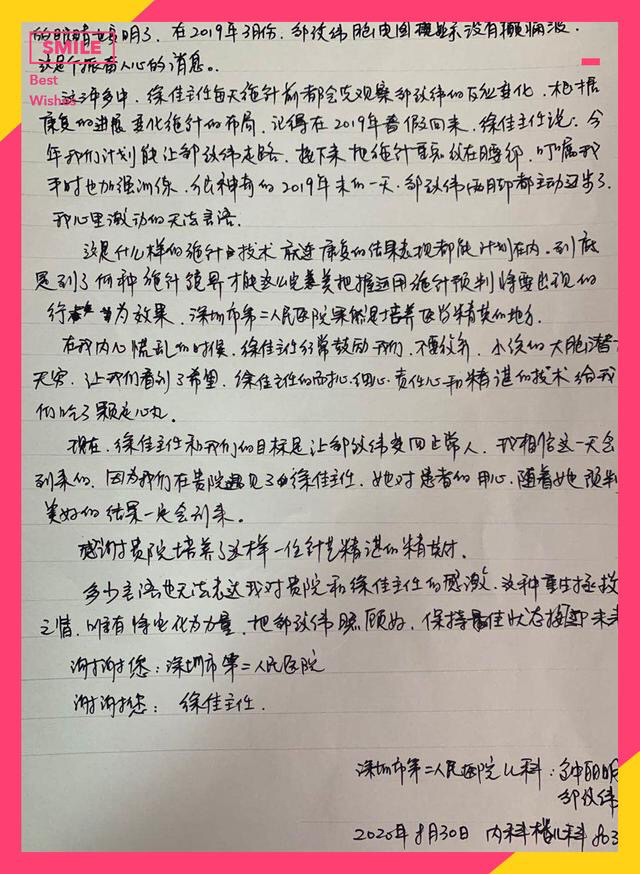 的眼睛 明了，在2019年3月份，邹 伟脑电图提显示没有癫痫波．
SMILE
这是个振奋人心的消息。
Best
Wishes
这 年多中，徐佳主任每天施针前都会先观察邹 伟的反应变化，根据
康复的进展变化施针的布局，记得在2019年暑假回来，徐佳主任说，今
年我们计划能让邹 伟走路，接下来把施针 在腰部，叮嘱我
平时也加强训练，在神奇的2019年末的一天，邹 伟两脚都主动迈步了．
我心里激动的无法言语．
这是什么样的施针 技术 就连康复的结果表现都能计划在内，到底
是到了何种施针境界才能这么完美把握运用施针预判将要出现的
行 为效果，深圳市第二人民医院果然是培养医学精英的地方．
在我内心慌乱的时候，徐佳主任经常鼓励我们，不要放弃，小孩的大脑潜
天穷，让我们看到了希望，徐佳主任的耐心，细心，责任心和精湛的技术给我
们吃了颗定心丸．
现在，徐佳主任和我们的目标是让邹 伟变回正常人，我相信这一天会
到来的，因为我们在贵院遇见了 徐佳主任，她对患者的用心，随着她预判
美好的结果一定会到来．
感谢贵院培养了这样一位针艺精湛的精英才．
多少言语也无法表达我对贵院和徐佳主任的感激，这种重生拯救
之情，唯有将它化为力量，把邹 伟照顾好，保持最佳状态接迎未来
谢谢您：深圳市第二人民医院
谢谢您： 徐佳主任．
深圳市第二人民医院儿科：
邹 伟
2020年8月30日 内科楼儿科